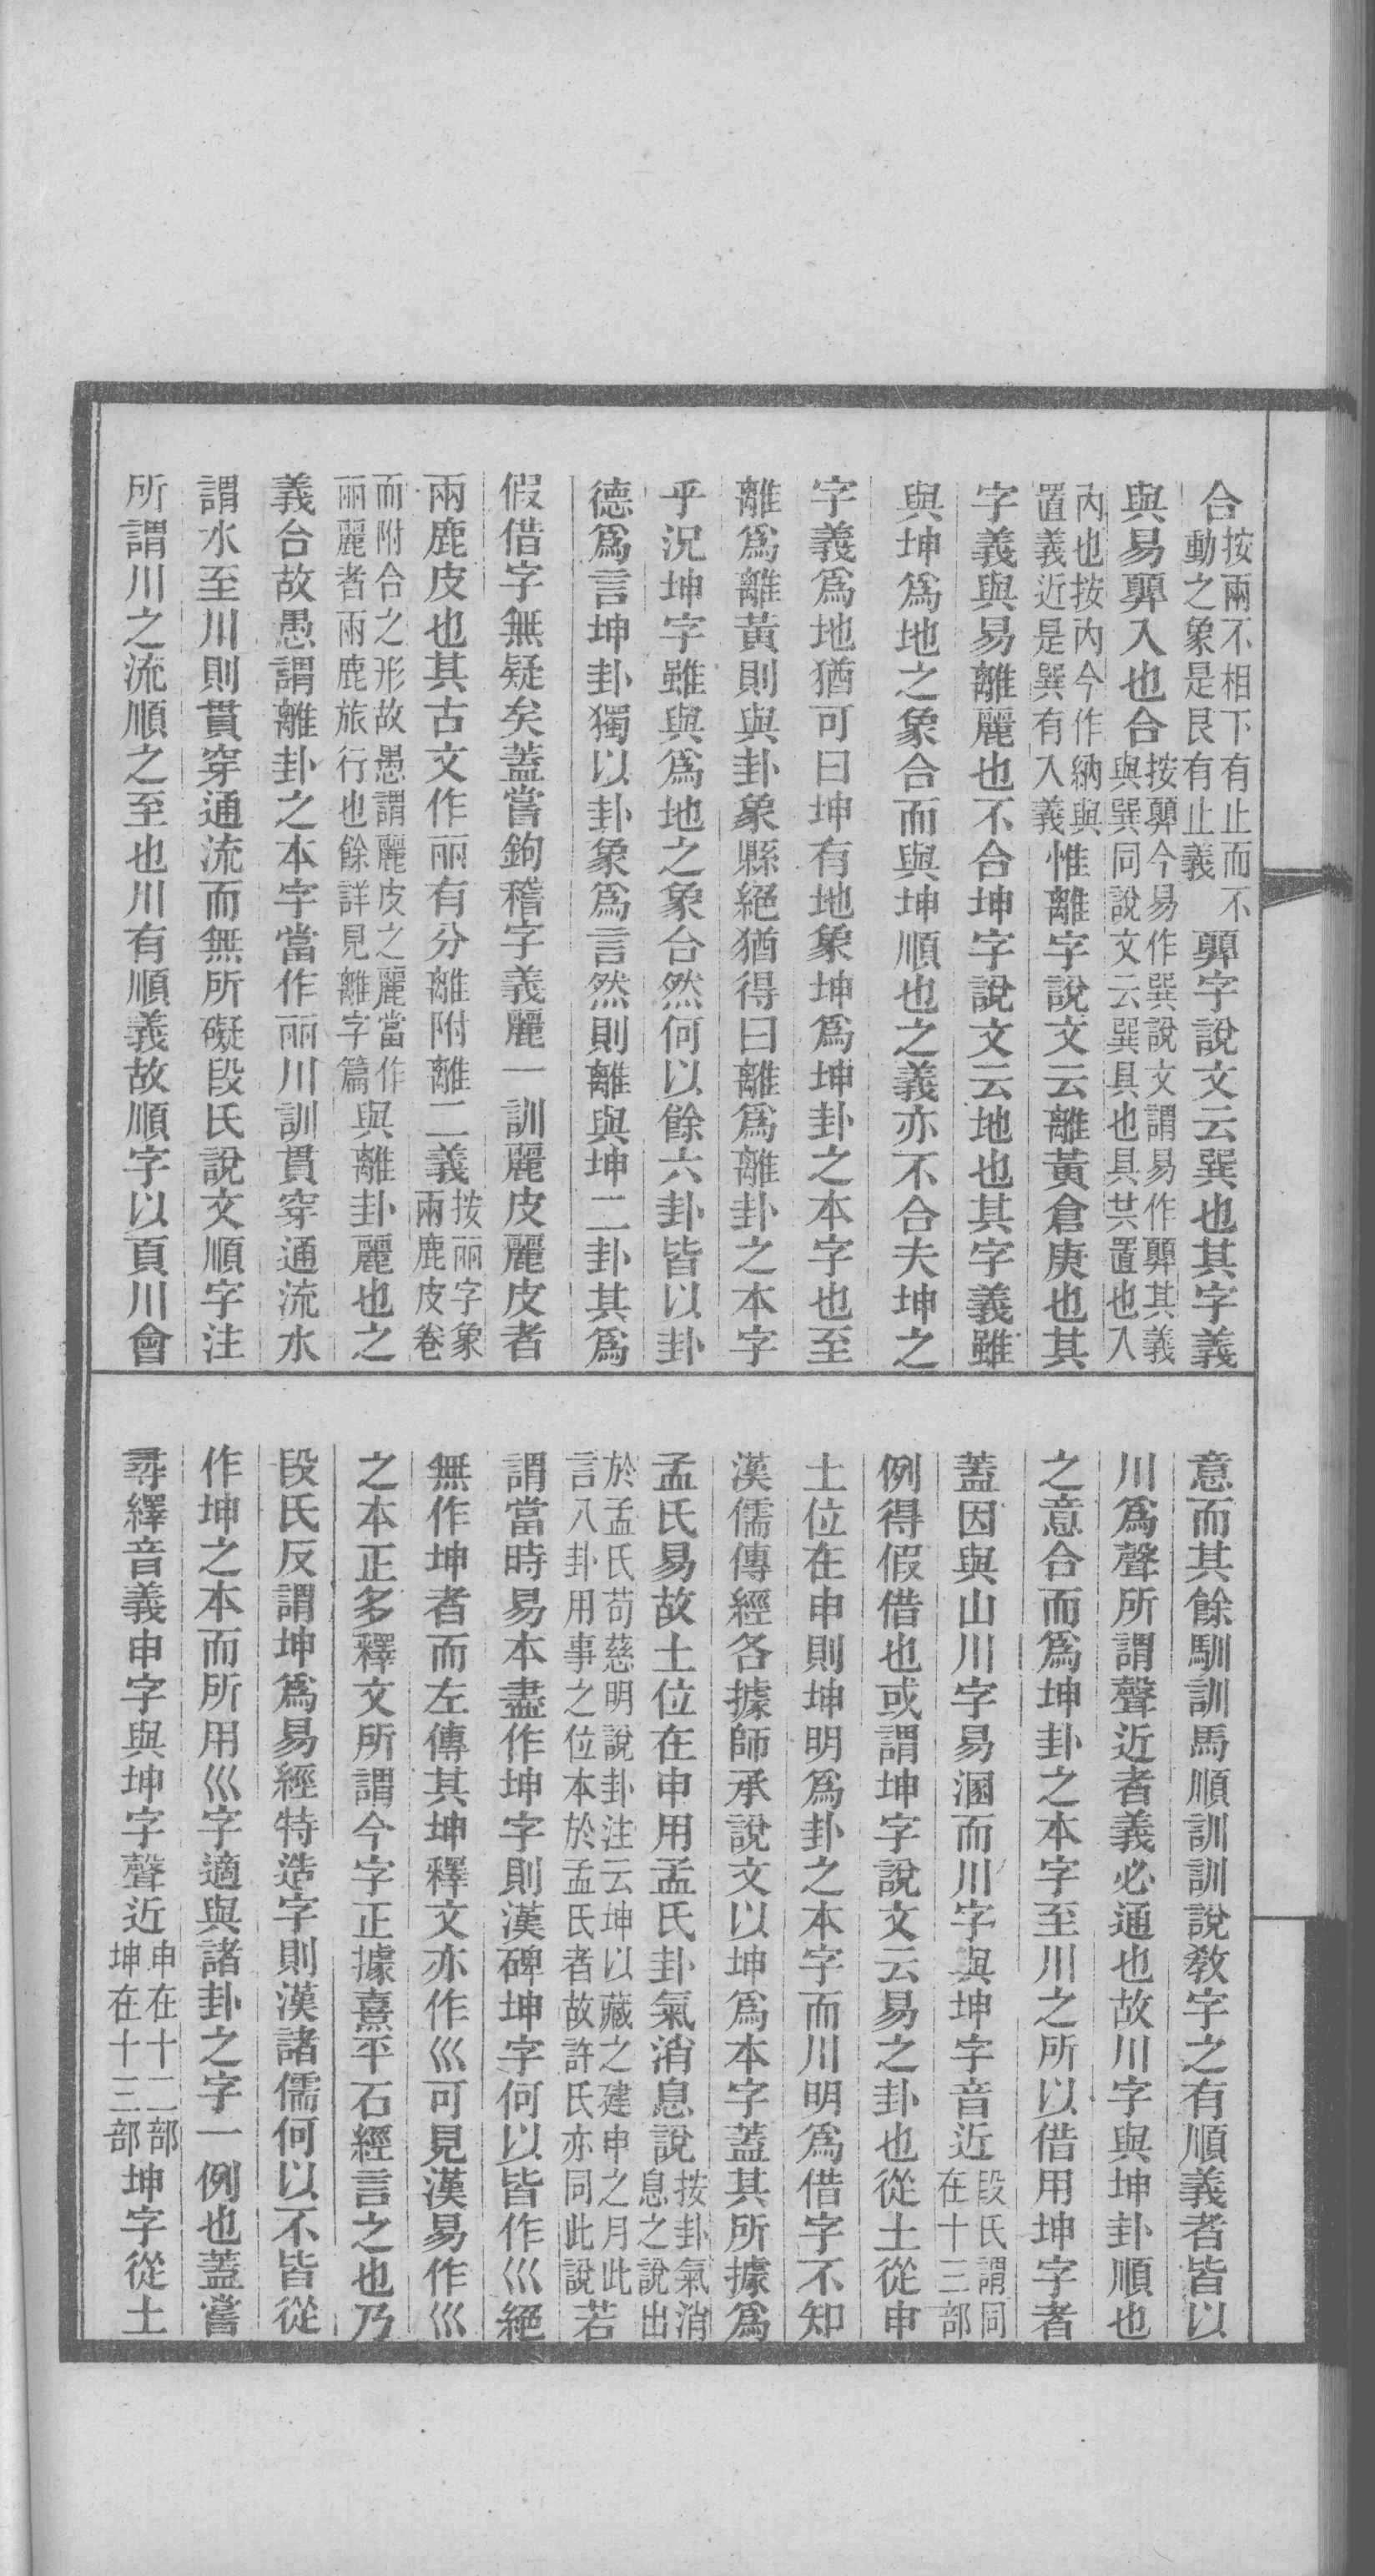 合按兩不相下有止而不動之象是艮有止義顨字說文云巽也其字義
與易顨入也合按顨今易作巽說文謂易作顨其義與巽同說文云巽具也具共置也入
內也按內今作納與置義近是巽有入義惟離字說文云離黃倉庚也其
字義與易離麗也不合坤字說文云地也其字義雖
與坤爲地之象合而與坤順也之義亦不合夫坤之
字義爲地猶可曰坤有地象坤爲坤卦之本字也至
離爲離黃則與卦象縣絕猶得曰離爲離卦之本字
乎況坤字雖與爲地之象合然何以餘六卦皆以卦
德爲言坤卦獨以卦象爲言然則離與坤二卦其爲
假借字無疑矣蓋嘗鉤稽字義麗一訓麗皮麗皮者
兩鹿皮也其古文作丽有分離附離二義按丽字象兩鹿皮卷
而附合之形故愚謂麗皮之麗當作丽麗者兩鹿旅行也餘詳見離字篇與離卦麗也之
義合故愚謂離卦之本字當作丽川訓貫穿通流水
謂水至川則貫穿通流而無所礙段氏說文順字注
所謂川之流順之至也川有順義故順字以頁川會
意而其餘馴訓馬順訓訓說教字之有順義者皆以
川爲聲所謂聲近者義必通也故川字與坤卦順也
之意合而爲坤卦之本字至川之所以借用坤字者
蓋因與山川字易溷而川字與坤字音近段氏謂同在十三部
例得假借也或謂坤字說文云易之卦也從土從申
土位在申則坤明爲卦之本字而川明爲借字不知
漢儒傳經各據師承說文以坤爲本字蓋其所據爲
孟氏易故土位在申用孟氏卦氣消息說按卦氣消息之說出
於孟氏荀慈明說卦注云坤以藏之建申之月此言八卦用事之位本於孟氏者故許氏亦同此說若
謂當時易本盡作坤字則漢碑坤字何以皆作巛絕
無作坤者而左傳其坤釋文亦作巛可見漢易作巛
之本正多釋文所謂今字正據熹平石經言之也乃
段氏反謂坤爲易經特造字則漢諸儒何以不皆從
作坤之本而所用巛字適與諸卦之字一例也蓋嘗
尋繹音義申字與坤字聲近申在十二部坤在十三部坤字從土